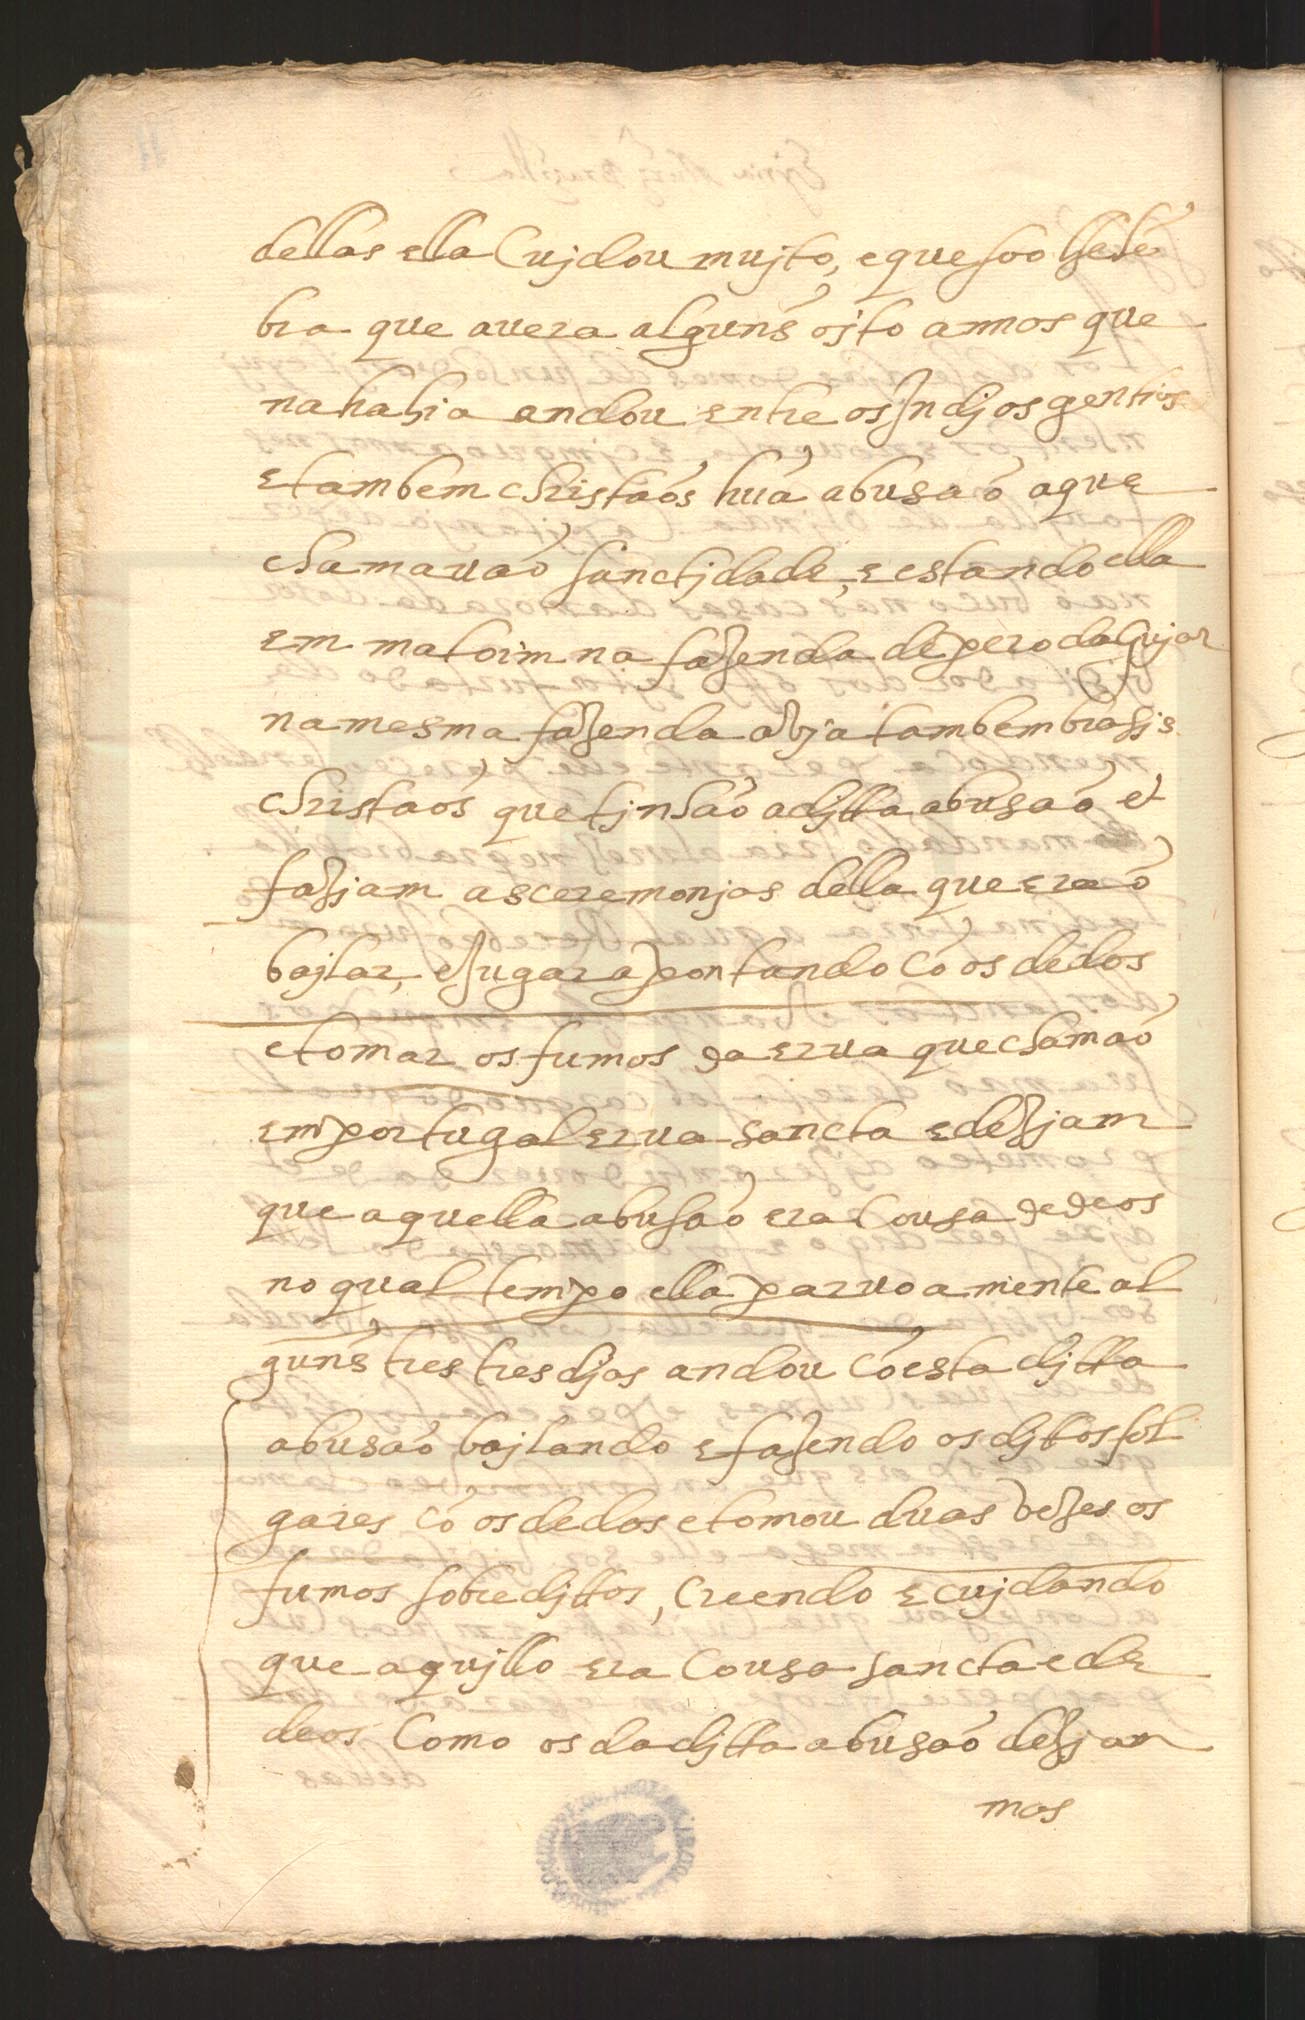 dellas ella Cujdou mujto, e que soo lhe lẽ
bra que auera alguns ojto annos que
na bahia andou entre os Indjos gentios
e tambem christãos hũa abusaõ a que
chamauaõ sanctjdade, e estando ella
em matoim na fazenda de pero daGujar
na mesma fazenda avja tambem brasis
christãos que tjnhaõ a djtta abusaõ et
fazjam as ceremonjas della que eraõ
bajlar, e Jugar apontando cõ os dedos
e tomar os fumos da erua que chamaõ
em portugal erua sancta e dezjam
que aquella abusaõ era Cousa de deos
no qual tempo ella paruoamente al
guns tres tres djas andou cõ esta djtta
abusaõ bajlando e fazendo os djttos fol
gares cõ os dedos e tomou duas vezes os
fumos sobredjttos, Creendo e cujdando
que aqujllo era Cousa sancta e de
deos Como os da djtta abusaõ dezjam
mos